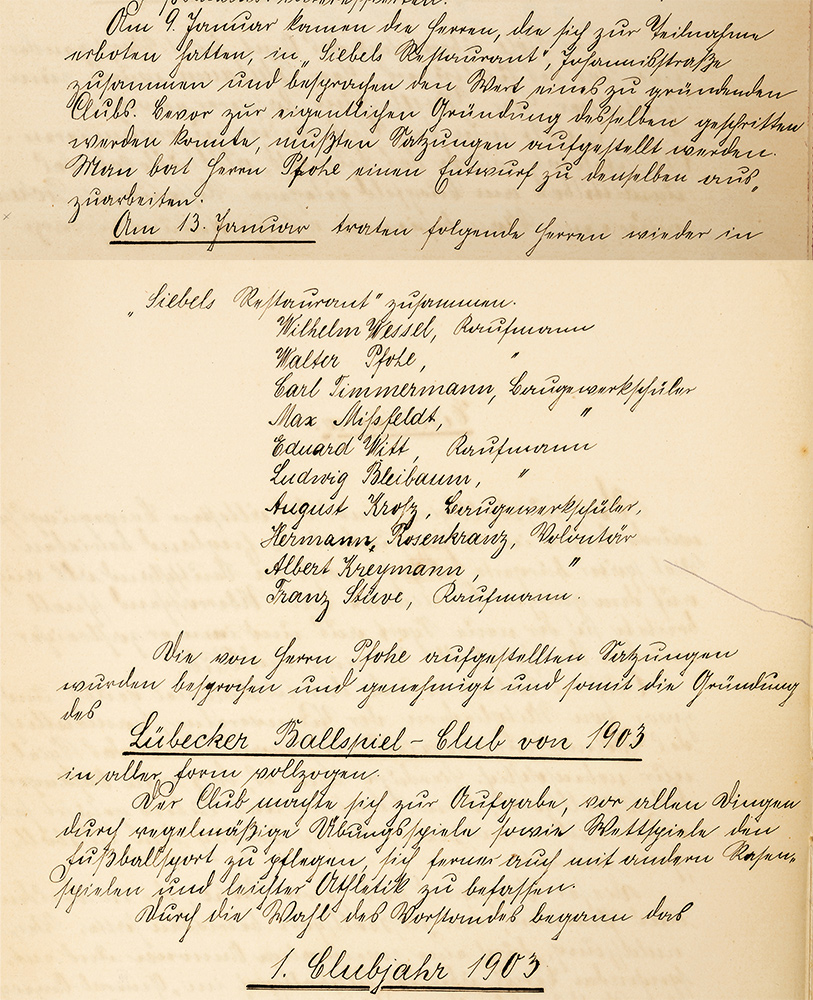 Am 9. Januar kamen die Herren, die sich zur Teilnahme
erboten hatten, in „Siebels Restaurant", Johannisstraße
zusammen und besprachen den Wert eines zu gründenden
Clubs. Bevor zur eigentlichen Gründung desselben geschritten
werden konnte, mußten Satzungen aufgestellt werden.
Man bat Herrn Pfohe einen Entwurf zu denselben aus-
zuarbeiten.
Am 13. Januar traten folgende Herren wieder in
„Siebels Restaurant" zusammen.
Wilhelm Wessel, Kaufmann
Walter Pfohe, "
Carl Timmermann, Baugewerkschüler
Max Missfeldt, "
Eduard Witt, Kaufmann
Ludwig Bleibaum, "
August Krosz, Baugewerkschüler,
Hermann Rosenkranz, Volontär
Albert Kreymann, "
Franz Stüwe, Kaufmann.
Die von Herrn Pfohe aufgestellten Satzungen
wurden besprochen und genehmigt und somit die Gründung
des
Lübecker Ballspiel-Club von 1903
in aller Form vollzogen.
Der Club machte sich zur Aufgabe, vor allen Dingen
durch regelmäßige Übungsspiele sowie Wettspiele den
Fußballsport zu pflegen, sich ferner auch mit andern Rasen-
spielen und leichter Athletik zu befassen.
Durch die Wahl des Vorstandes begann das
1. Clubjahr 1903